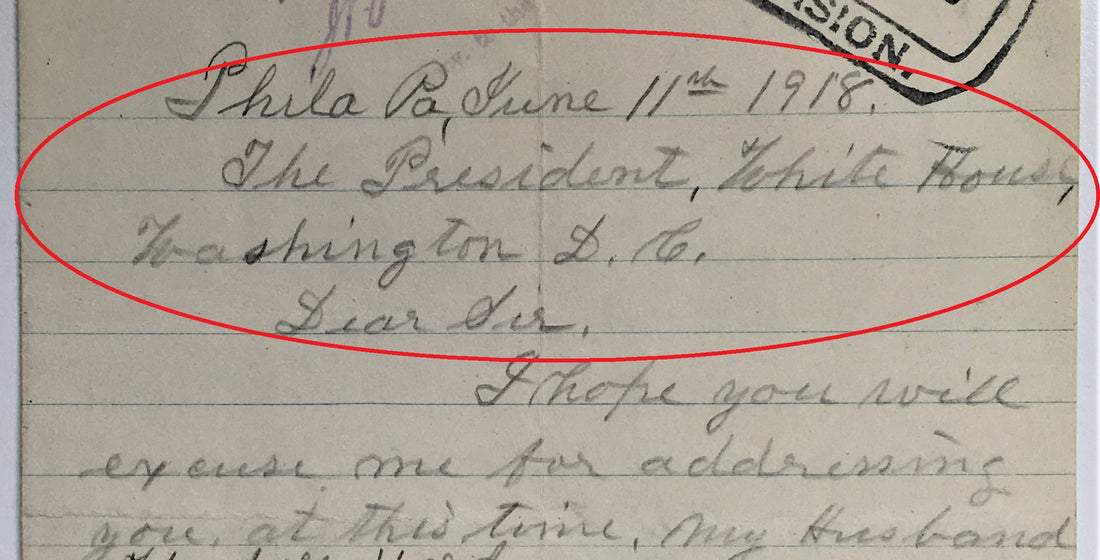 SION.
Phila Pa, June 11th 1918.
The President, White House,
Washington D. C.
Dear Sir.
I hope you will
excuse me for addressing
you, at this time, My Husband